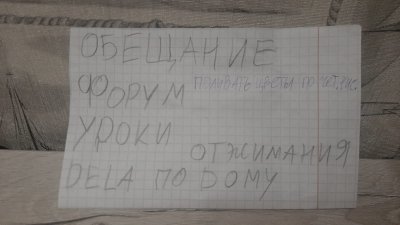 ОБЕЩАНИЕ
ФОРУМ
ПОЛИВАТЬ ЦВЕТЫ ПО
УРОКИ
ОТЖИМАНИЯ
DELA ПО DОМУ